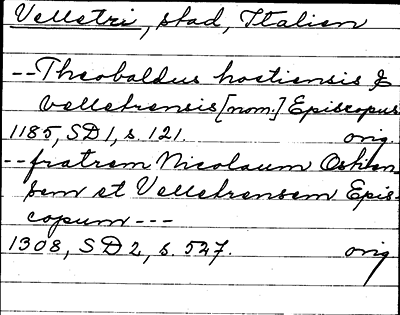 Velletri, stad, Italien
-- Theobaldus hostiensis &
vellehrensis [nom.] Episcopus
1185, SD1, s. 121. orig.
-- fratrem Nicolaum Ostien-
sem et Vellehrensem Epis-
copum ---
1308, SD2, s. 527. orig